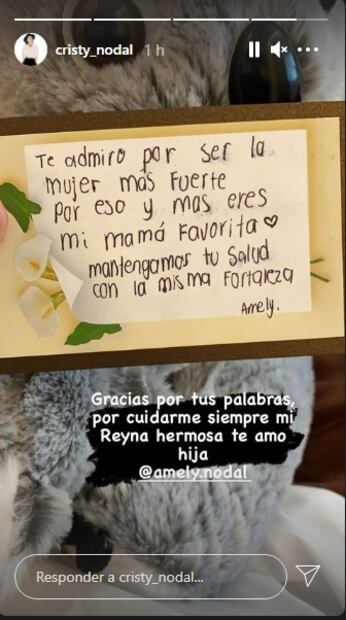 cristy_nodal 1 h
Te admiro por ser la
mujer más Fuerte
Por eso y mas eres
mi mamá Favorita
mantengamos tu Salud
con la misma Fortaleza
Amely.
Gracias por tus palabras,
por cuidarme siempre mi
Reyna hermosa te amo
hija
@amely.nodal
Responder a cristy_nodal...